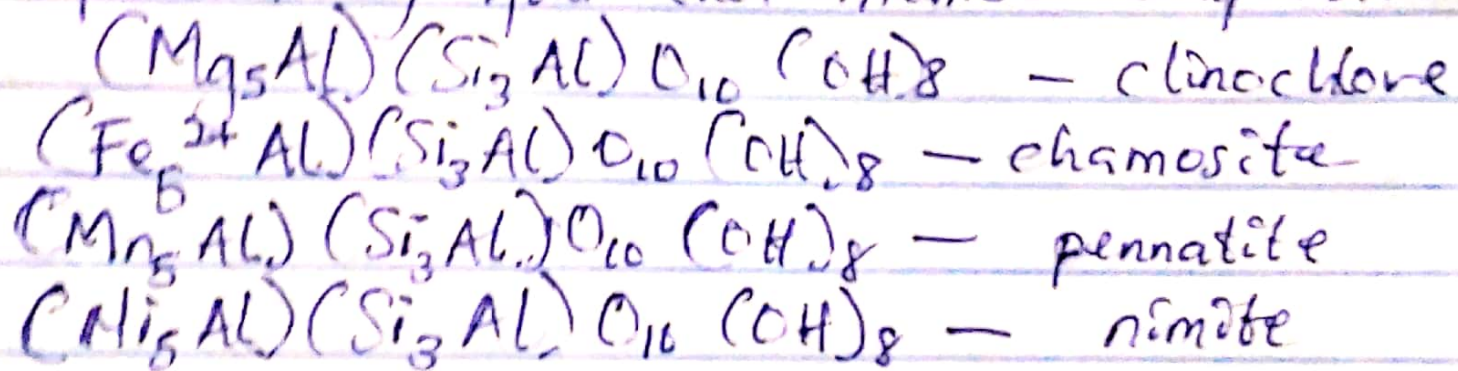 (Mg₅Al)(Si₃Al)O₁₀(OH)₈ – clinochlore
(Fe₅²⁺Al)(Si₃Al)O₁₀(OH)₈ – chamosite
(Mn₅Al)(Si₃Al)O₁₀(OH)₈ – pennatite
(Ni₅Al)(Si₃Al)O₁₀(OH)₈ – nimite